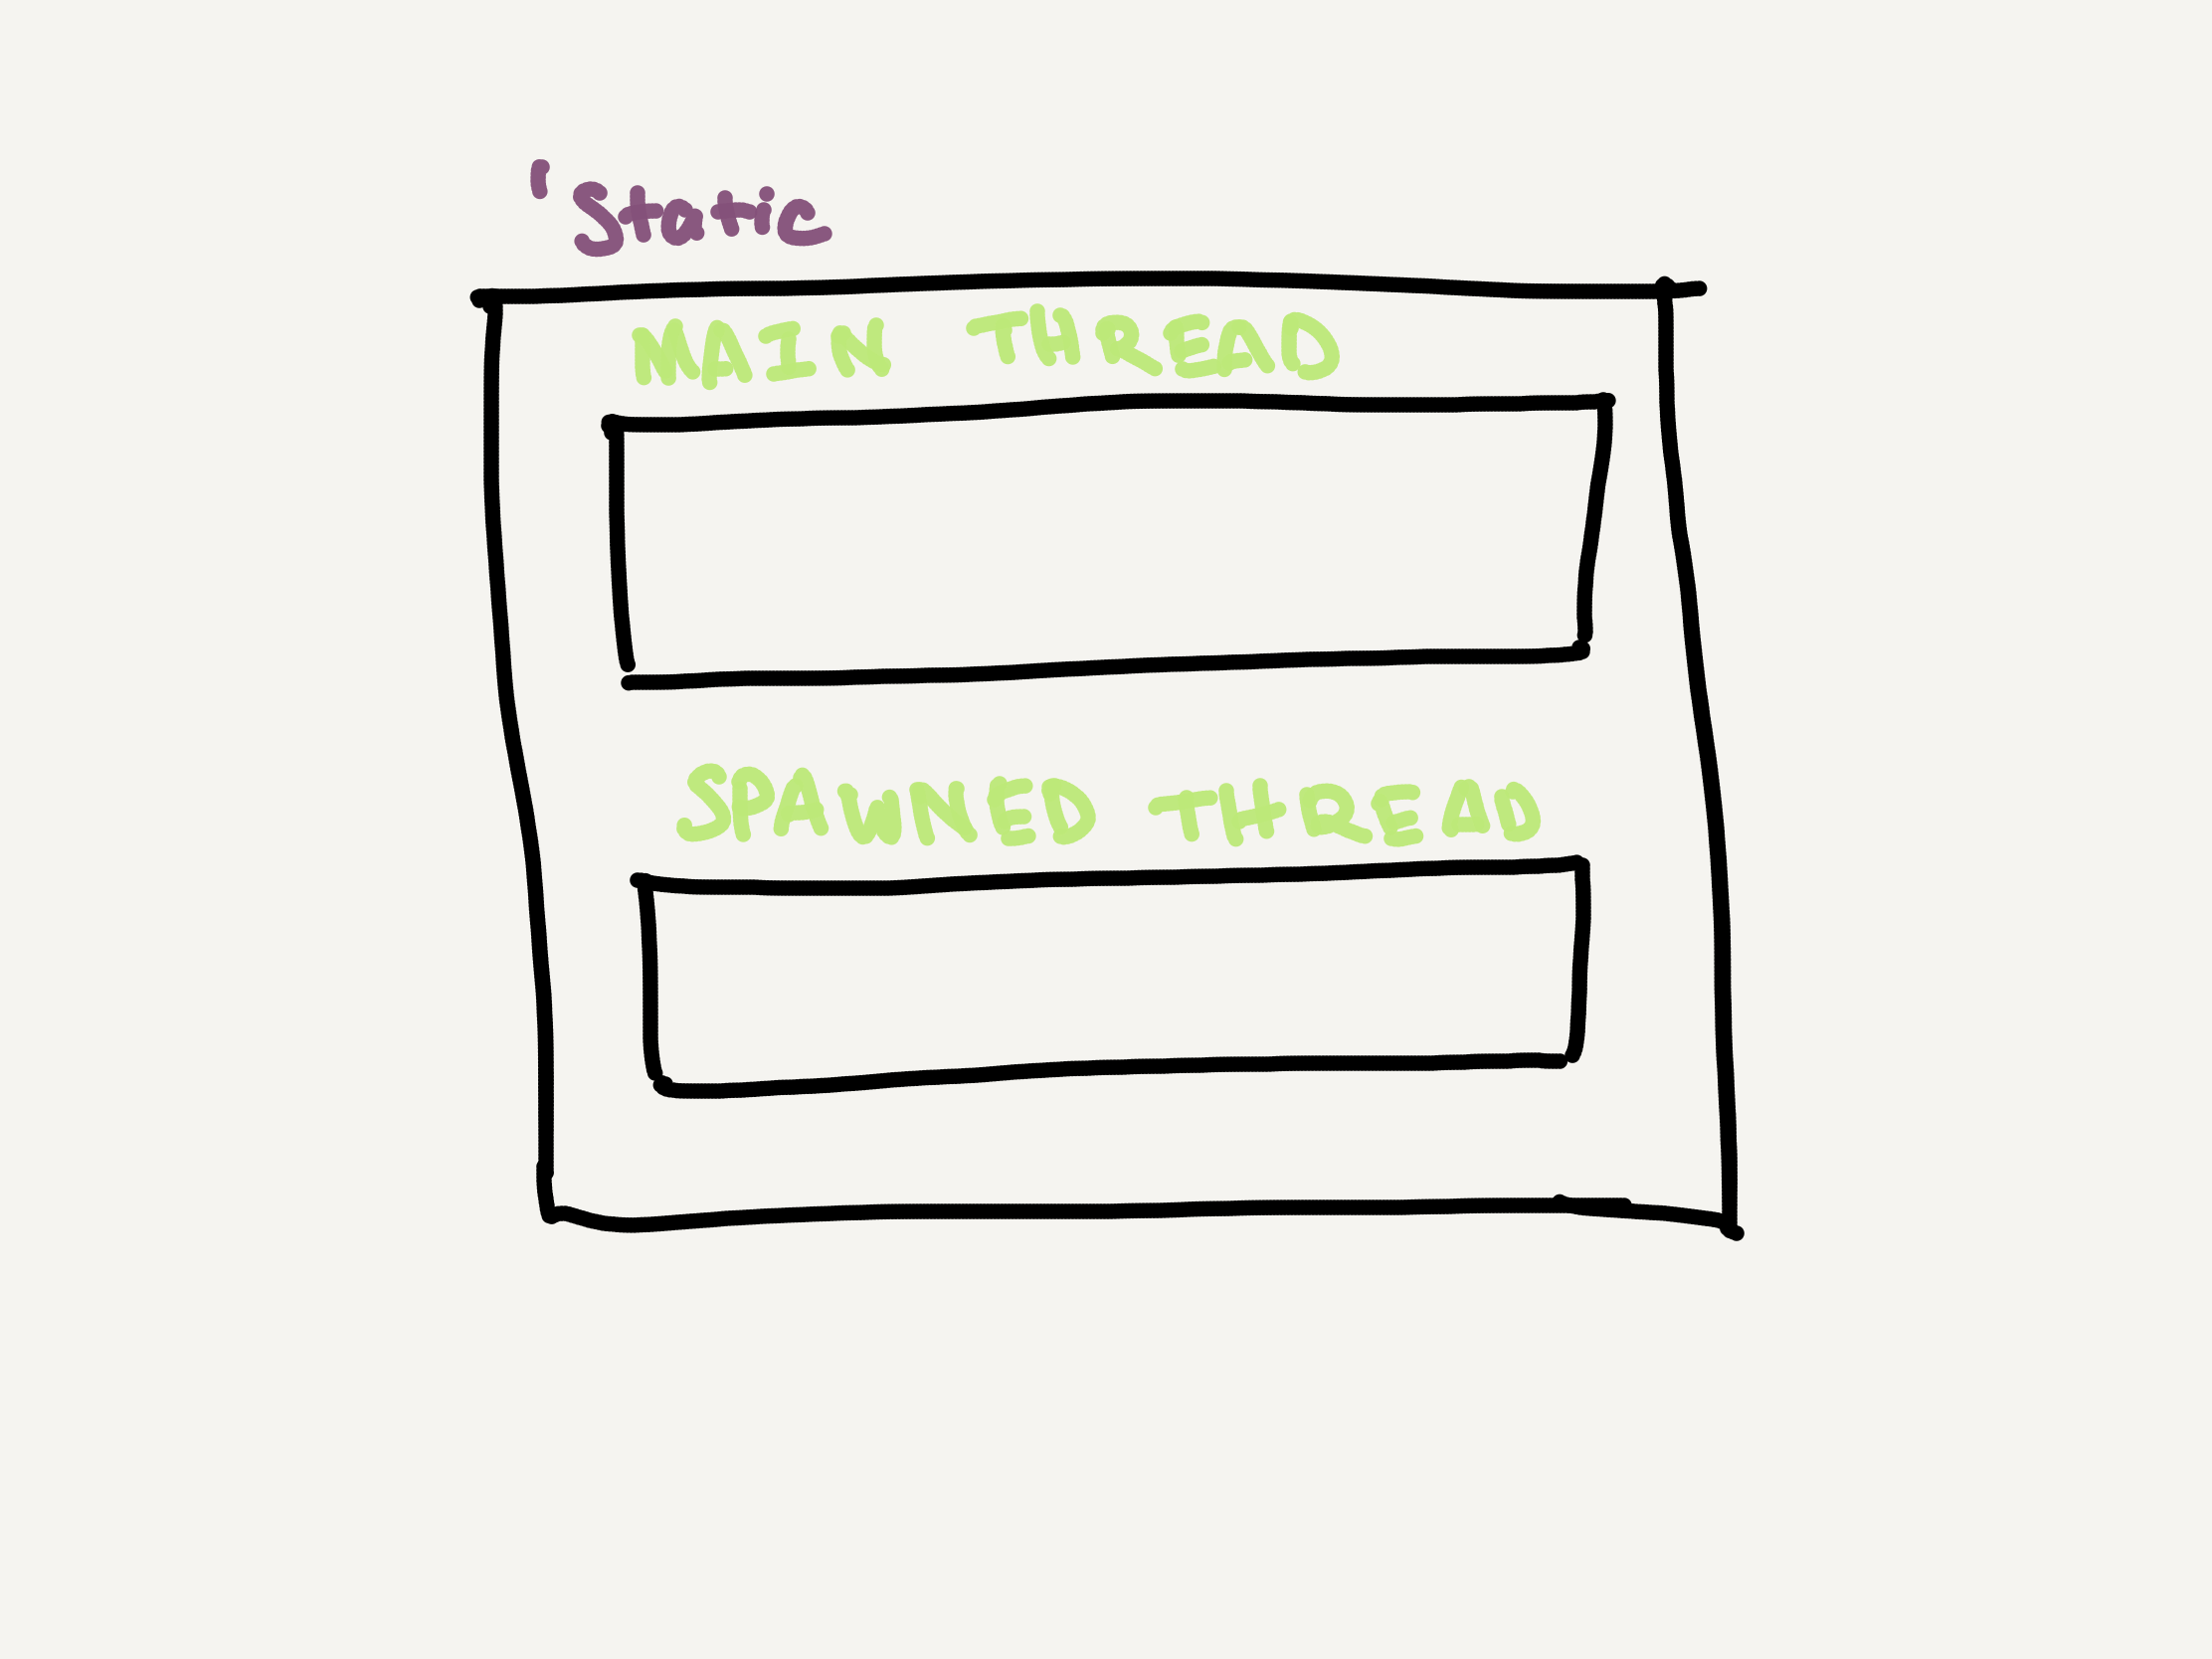 'Static
MAIN THREAD
SPAWNED THREAD